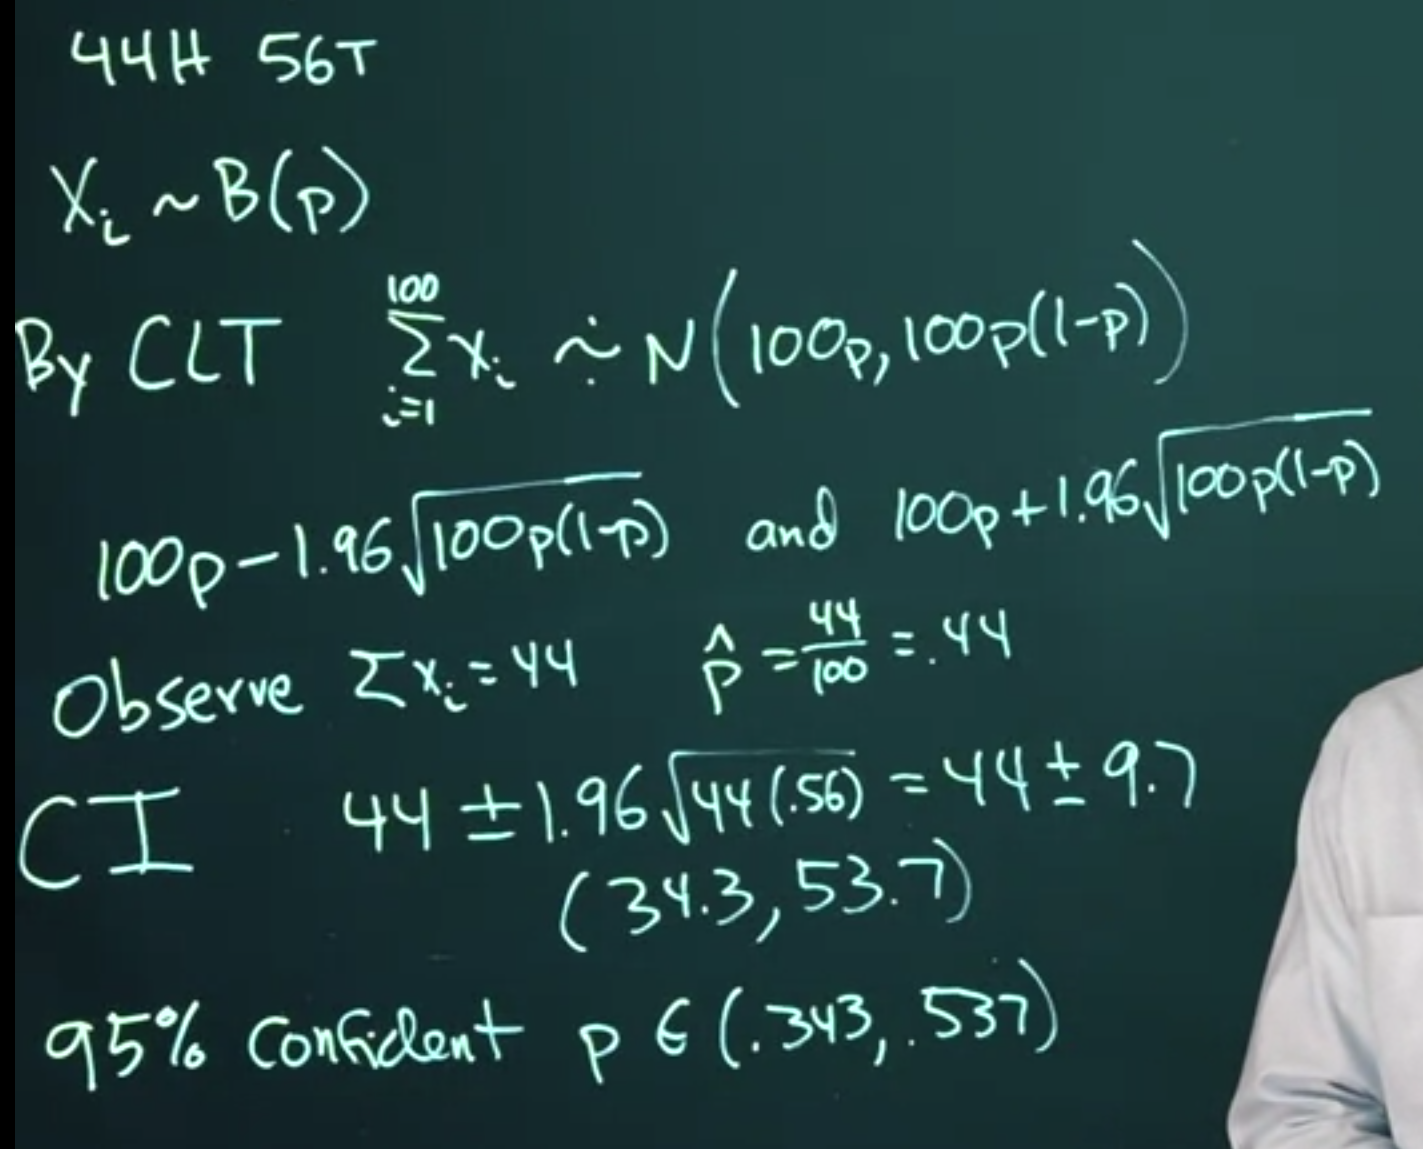 44H 56T
X_i ~ B(p)
By CLT \sum_{i=1}^{100} X_i \dot{\sim} N(100p, 100p(1-p))
100p - 1.96\sqrt{100p(1-p)} and 100p + 1.96\sqrt{100p(1-p)}
Observe Σx_i = 44 p̂ = \frac{44}{100} = .44
CI 44 ± 1.96\sqrt{44(.56)} = 44 ± 9.7
(34.3, 53.7)
95% confident p ∈ (.343, .537)